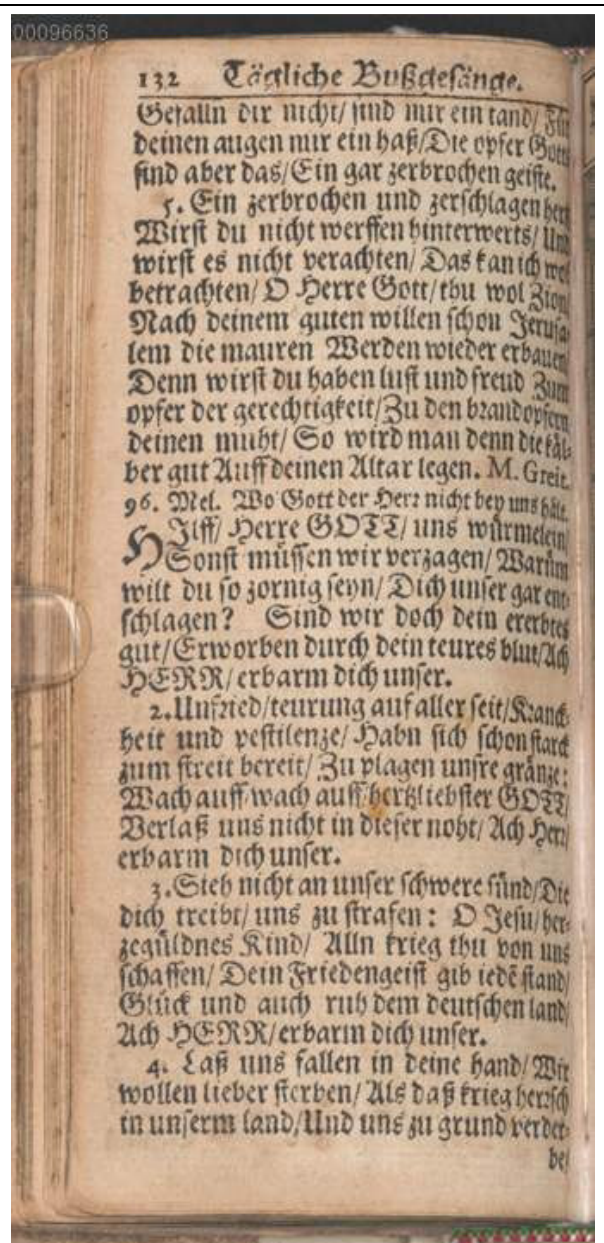 00096636
132 Tägliche Bußgesänge.
Gefalln dir nicht/ sind mir ein tand/ Für
deinen augen nur ein haß/Die opfer Gotts
sind aber das/Ein gar zerbrochen geiste.
5. Ein zerbrochen und zerschlagen hertz
Wirst du nicht werffen hinterwerts/ Und
wirst es nicht verachten/ Das kan ich wol
betrachten/ O Herre Gott/thu wol Zion/
Nach deinem guten willen schon Jerusa-
lem die mauren Werden wieder erbauen/
Denn wirst du haben lust und freud Zum
opfer der gerechtigkeit/Zu den brandopfern
deinen muht/ So wird man denn die käl-
ber gut Auff deinen Altar legen. M. Greit.
96. Mel. Wo Gott der Herr nicht bey uns hält.
HJlff/ Herre GOTT/ uns würmelein/
Sonst müssen wir verzagen/ Warüm
wilt du so zornig seyn/ Dich unser gar ent-
schlagen? Sind wir doch dein ererbtes
gut/Erworben durch dein teures blut/Ach
HERR/ erbarm dich unser.
2. Unfried/teurung auf aller seit/Kranck-
heit und pestilenze/ Habn sich schon starck
zum streit bereit/ Zu plagen unsre gränze:
Wach auff/wach auff/hertzliebster GOTT/
Verlaß uns nicht in dieser noht/ Ach Herr/
erbarm dich unser.
3. Sieh nicht an unser schwere sünd/Die
dich treibt/ uns zu strafen: O Jesu/her-
zegüldnes Kind/ Alln krieg thu von uns
schaffen/ Dein Friedengeist gib iedē stand/
Glück und auch ruh dem deutschen land/
Ach HERR/erbarm dich unser.
4. Laß uns fallen in deine hand/ Wir
wollen lieber sterben/ Als daß krieg herrsch
in unserm land/Und uns zu grund verder-
be/